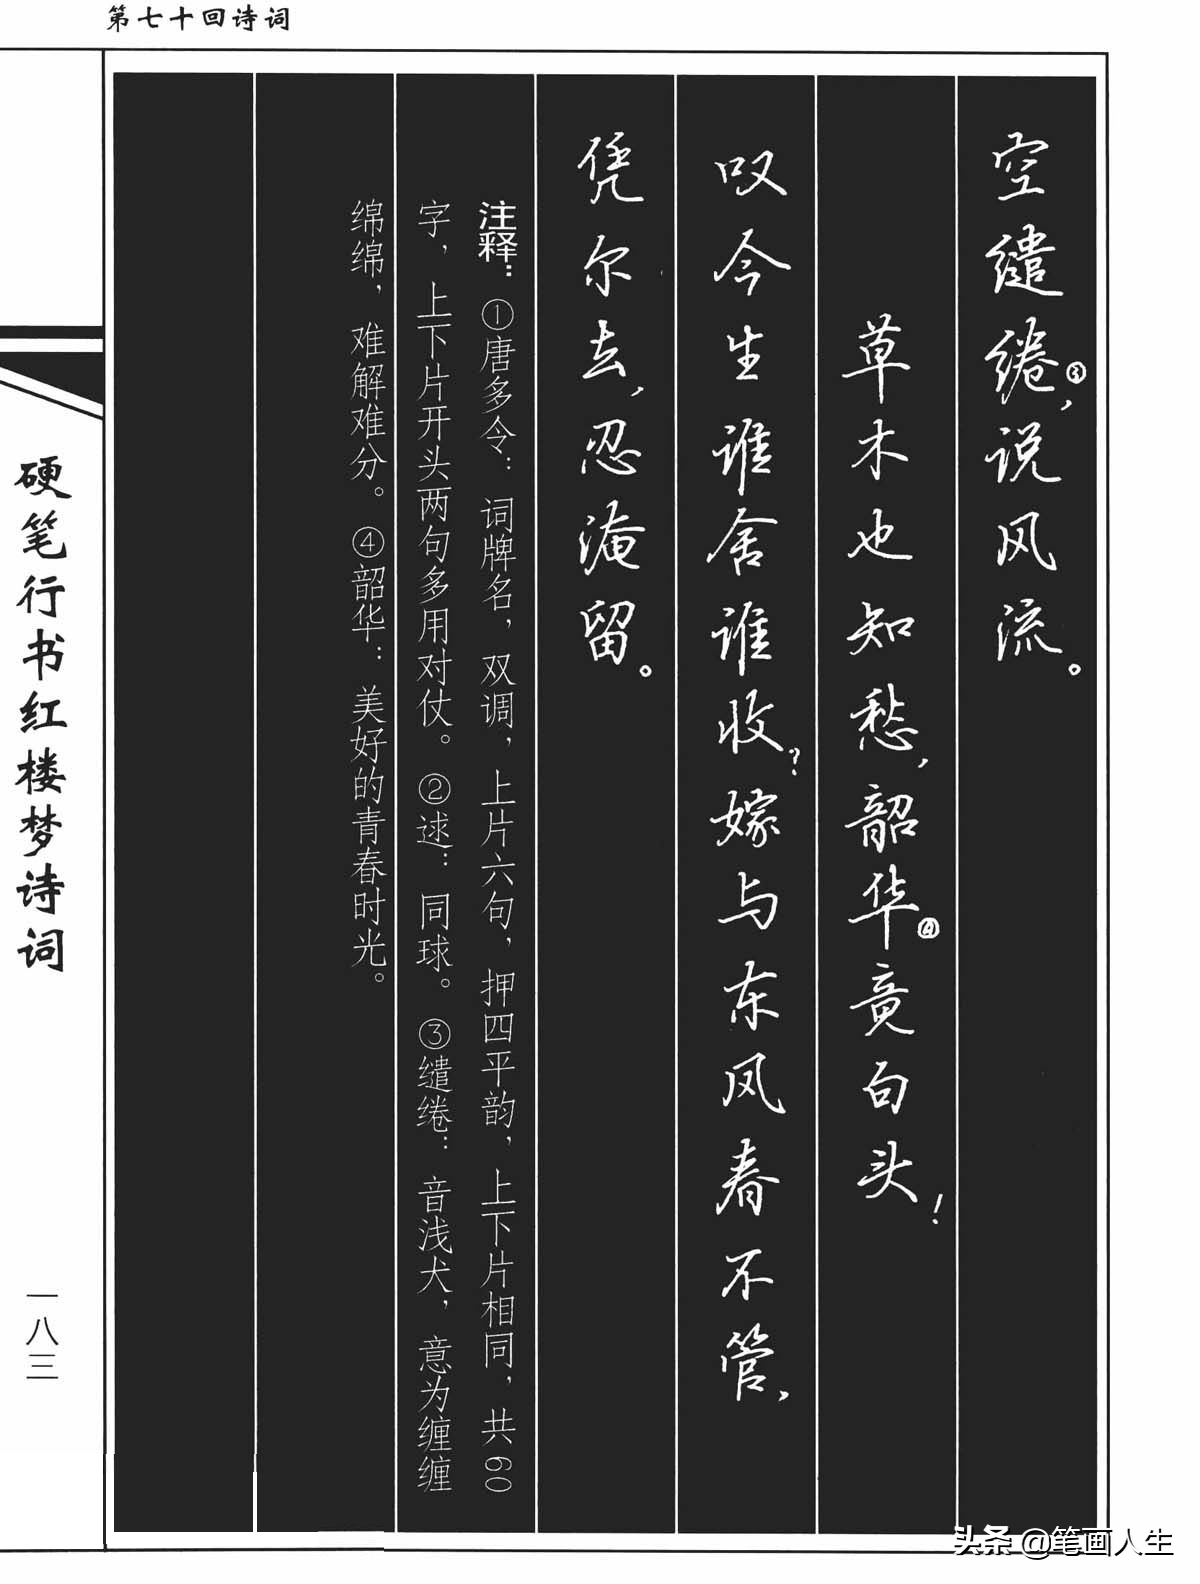 第七十回诗词
空缱绻③,说风流。
草木也知愁,韶华④竟白头!
叹今生谁舍谁收?嫁与东风春不管,
凭尔去,忍淹留。
注释:①唐多令:词牌名,双调,上片六句,押四平韵,上下片相同,共60
字,上下片开头两句多用对仗。②逑:同球。③缱绻:音浅犬,意为缠缠
绵绵,难解难分。④韶华:美好的青春时光。
硬笔行书红楼梦诗词
一八三
头条 @笔画人生